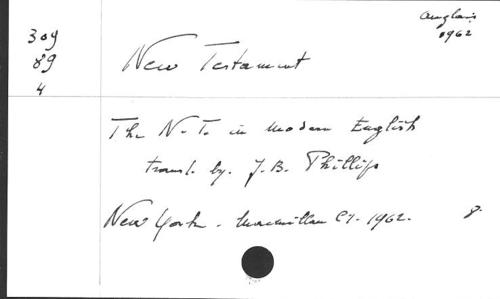 anglais
1962
309
89
4
New Testament
The N.T. in modern English
transl. by. J.B. Phillips
New York. Macmillan Cy. 1962. 8.